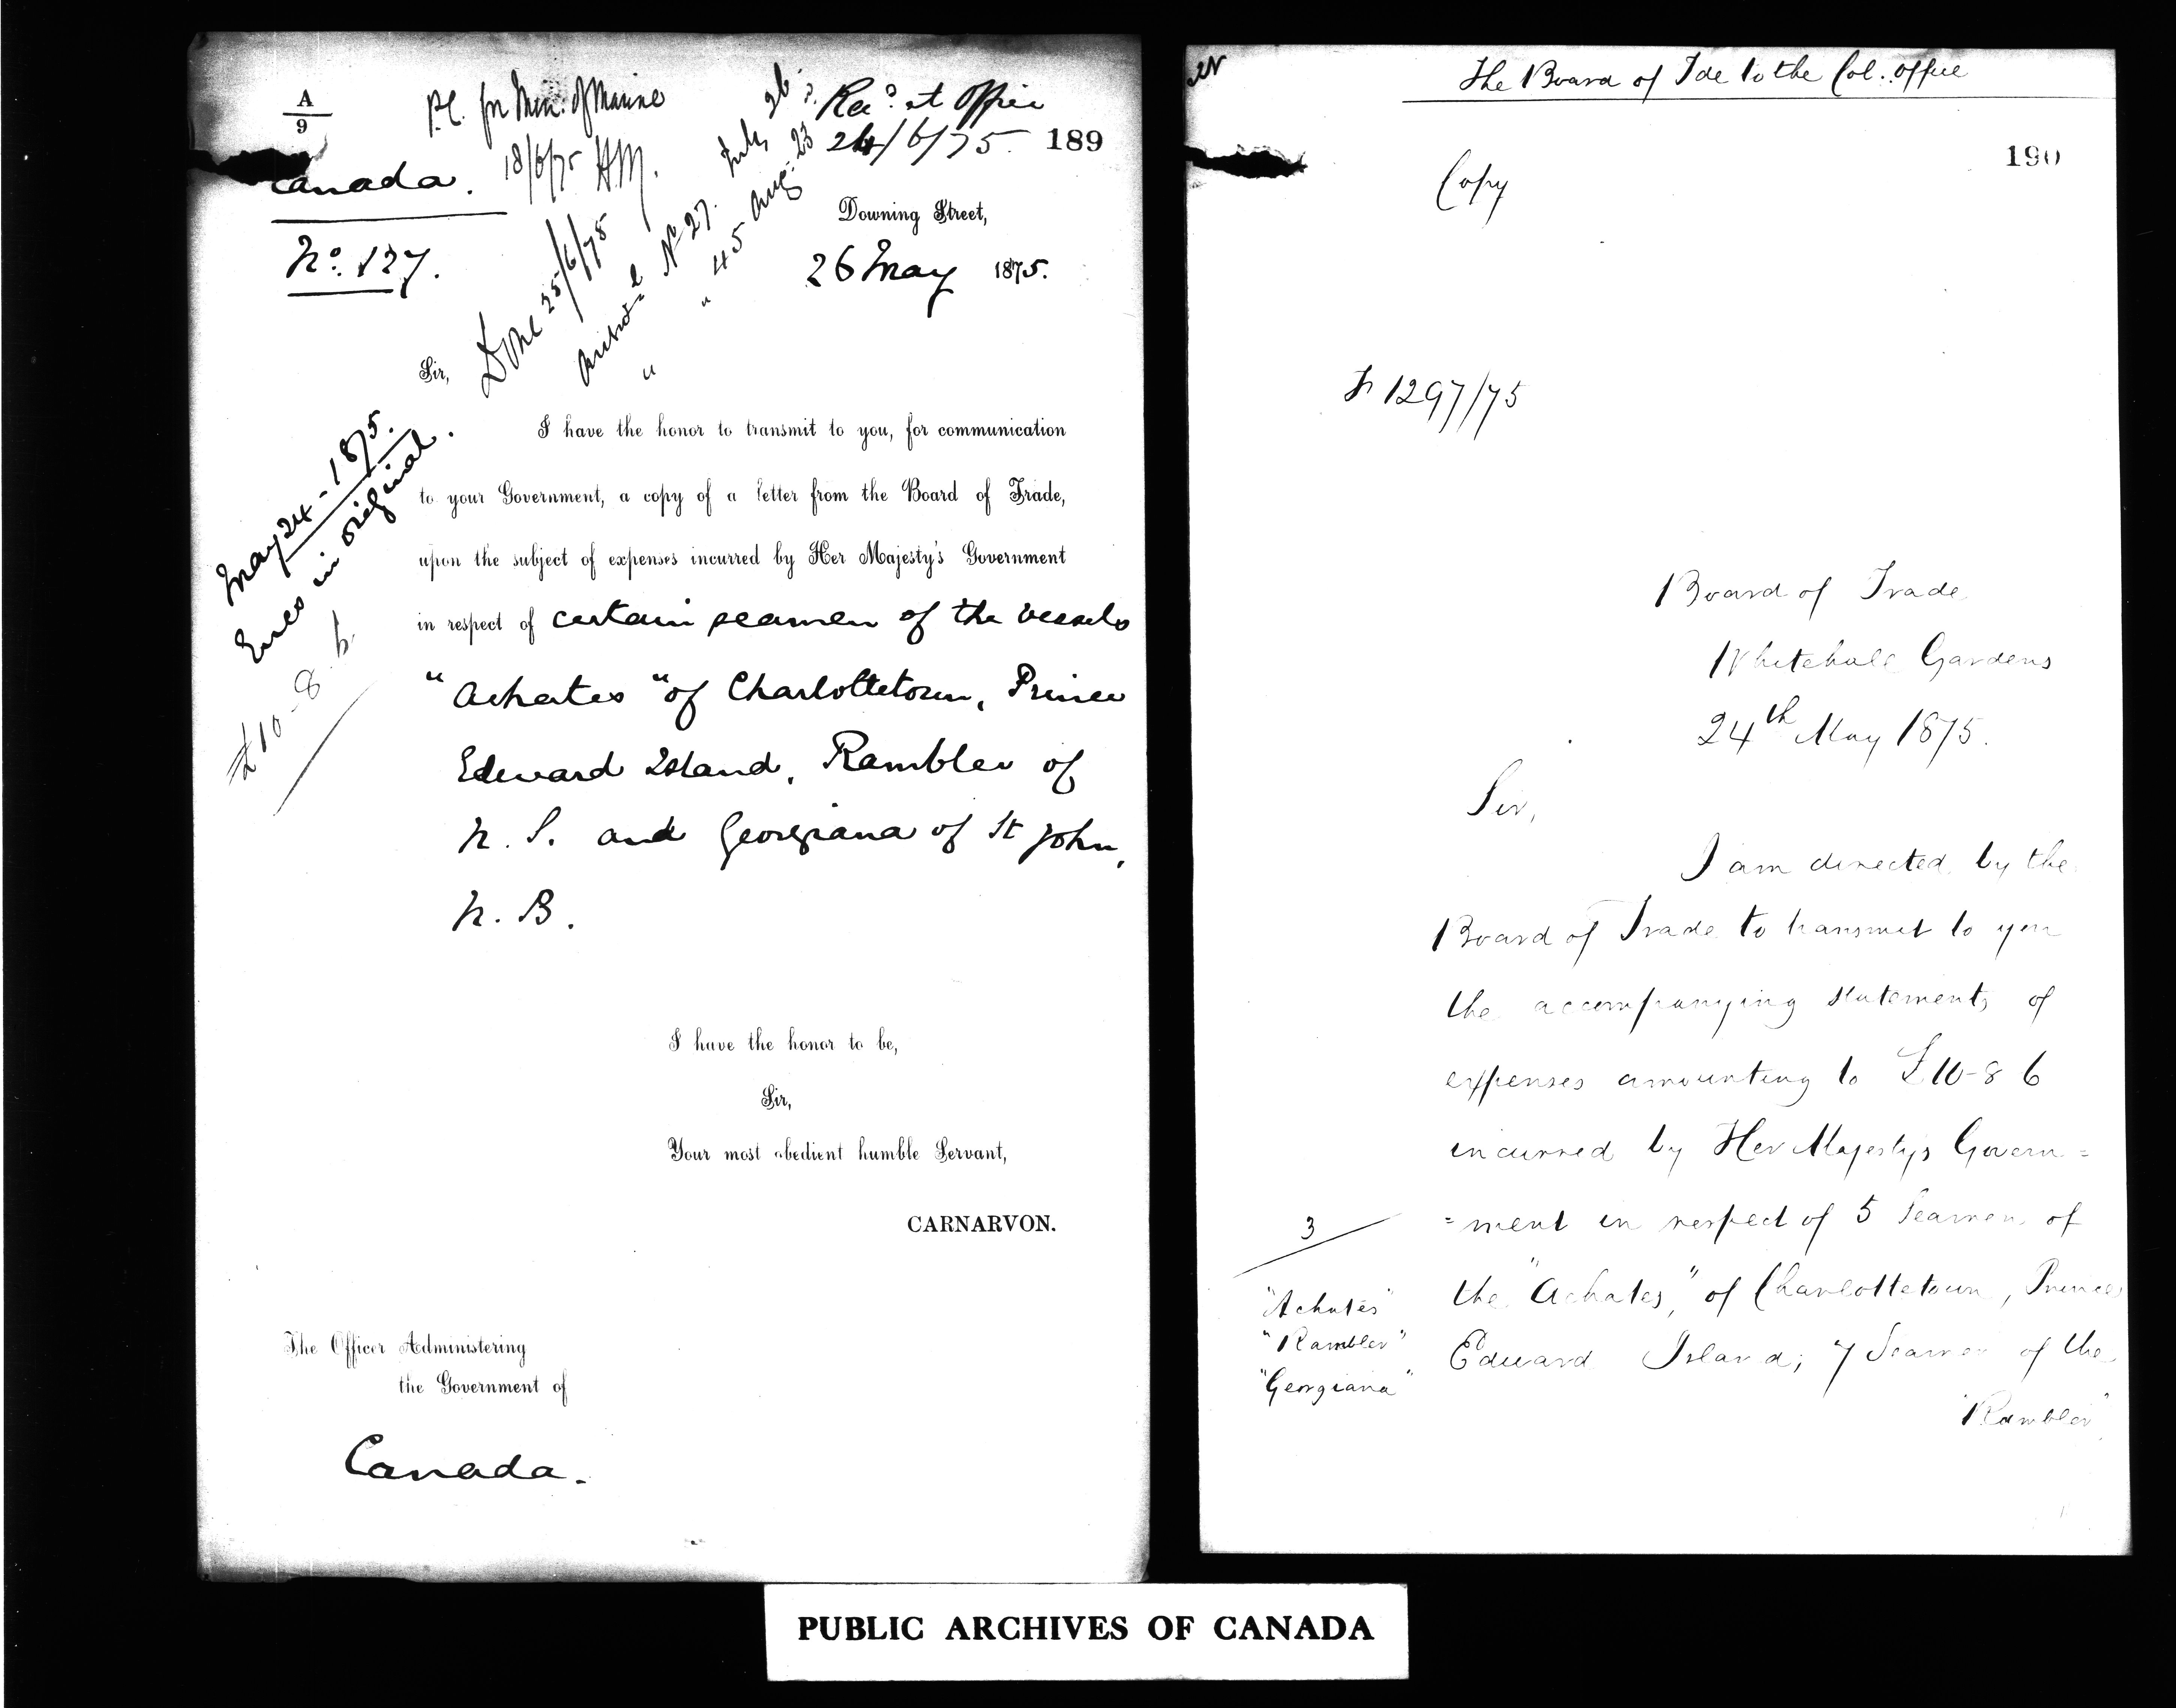 A
9
Canada.
No. 127.
P.C. for Min. of Marine
18/6/75 H.M.
Recd. at Office
24/6/75.
189
Done 25/6/75
No 27. July 26
" " 45 Aug. 23
Downing Street,
26 May 1875.
May 24 - 1875.
Encs in original.
£10-8.6.
Sir,
I have the honor to transmit to you, for communication
to your Government, a copy of a letter from the Board of Trade,
upon the subject of expenses incurred by Her Majesty's Government
in respect of certain seamen of the vessels
"Achates" of Charlottetown, Prince
Edward Island, Rambler of
N. S. and Georgiana of St John,
N. B.
I have the honor to be,
Sir,
Your most obedient humble Servant,
CARNARVON.
The Officer Administering
the Government of
Canada.
The Board of Tde to the Col. Office
190
Copy
1297/75
Board of Trade
Whitehall Gardens
24th May 1875.
Sir,
I am directed by the
Board of Trade to transmit to you
the accompanying statements of
expenses amounting to £10-8 6
incurred by Her Majestys Govern=
=ment in respect of 5 Seamen of
the "Achates," of Charlottetown, Prince
Edward Island; 7 Seamen of the
"Rambler"
3
"Achates"
"Rambler"
"Georgiana"
PUBLIC ARCHIVES OF CANADA